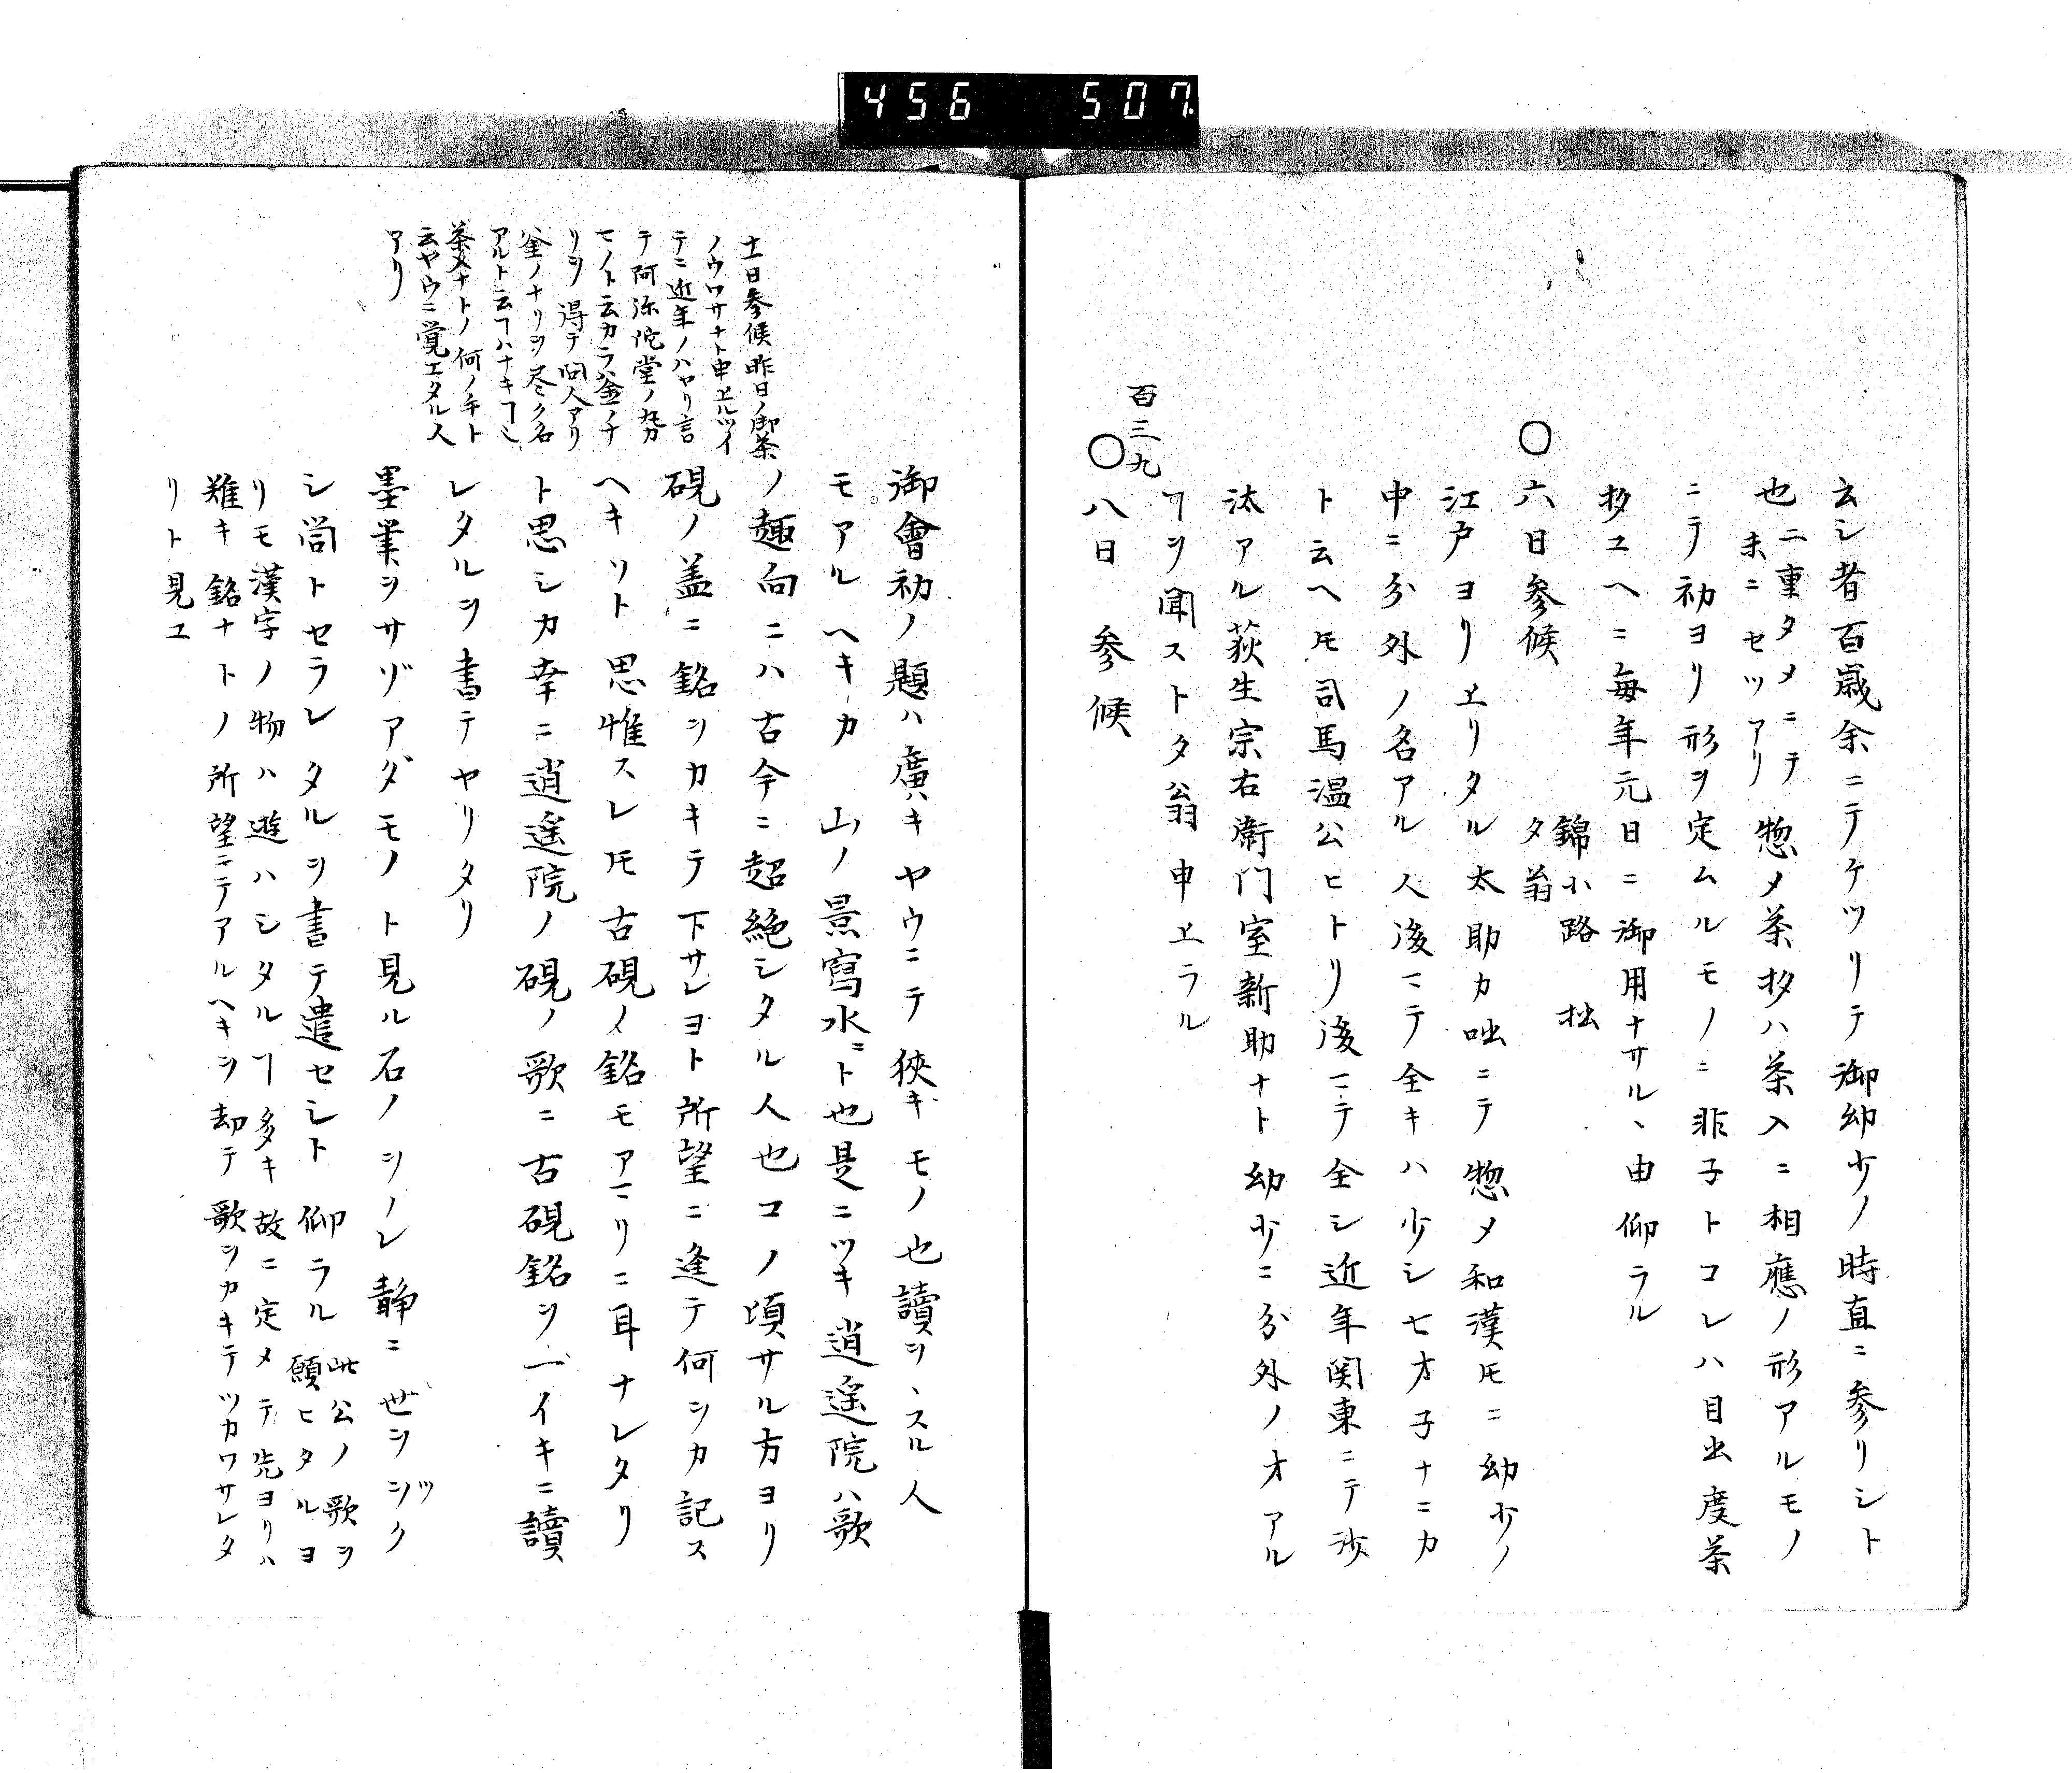 456 507
云シ者百歳余ニテケツリテ御幼少ノ時直ニ参リシト
也二重タメニテ
末ニセツアリ
惣メ茶杓ハ茶入ニ相應ノ形アルモノ
ニテ初ヨリ形ヲ定ムルモノニ非子トコレハ目出度茶
杓ユヘニ毎年元日ニ御用ナサルヽ由仰ラル
〇六日参候
錦小路 拙
タ翁
江戸ヨリヱリタル太助カ咄ニテ惣メ和漢𪜈ニ幼少ノ
中ニ分外ノ名アル人後ニテ全キハ少シ七才子ナニカ
ト云ヘ𪜈司馬温公ヒトリ後ニテ全シ近年関東ニテ沙
汰アル荻生宗右衛門室新助ナト幼少ニ分外ノオアル
ヿヲ聞ストタ翁申ヱラル
百三九
〇八日参候
御會初ノ題ハ廣キヤウニテ狹キモノ也讀ヲヽスル人
モアルヘキカ 山ノ景寫水ニト也是ニツキ逍遥院ハ歌
ノ趣向ニハ古今ニ超絶シタル人也コノ頃サル方ヨリ
硯ノ盖ニ銘ヲカキテ下サレヨト所望ニ逢テ何ヲカ記ス
ヘキソト思惟スレ𪜈古硯ノ銘モアマリニ耳ナレタリ
ト思シカ幸ニ逍遥院ノ硯ノ歌ニ古硯銘ヲ一イキニ讀
レタルヲ書テヤリタリ
墨筆ヲサゾアダモノト見ル石ノシノレ静ニ世ヲツ
ヅク
シ尚トセラレタルヲ書テ遣セシト仰ラル
此公ノ歌ヲ
願ヒタルヨ
リモ漢字ノ物ハ遊ハシタルヿ多キ故ニ定メテ先ヨリハ
難キ銘ナトノ所望ニテアルヘキヲ却テ歌ヲカキテツカワサレタ
リト見ユ
十一日参候昨日ノ御茶
ノウワサナト申ヱルツイ
テニ近年ノハヤリ言
テ阿弥陀堂ノ九カ
ヒノト云カラ釜ノナ
リヲ得テ問人アリ
釜ノナリヲ尽ク名
アルト云ヿハナキヿ也
茶入ナトノ何ノ手ト
云ヤウニ覚エタル人
アリ